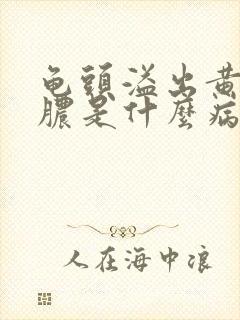 龟頭溢出黄
膿是什麼病
人在海中浪